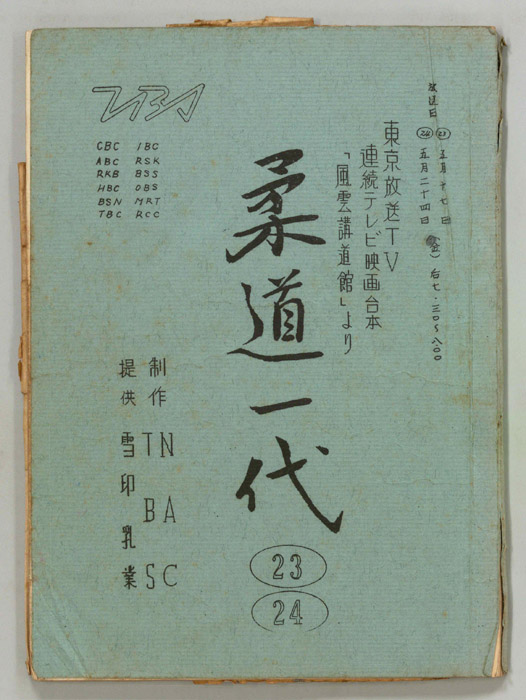 放送日
㉓ 五月十七日
㉔ 五月二十四日 (金) 后七・三〇〜八・〇〇
東京放送TV
連続テレビ映画台本
「風雲講道館」より
柔道一代
23
24
TBS
CBC IBC
ABC RSK
RKB BSS
HBC OBS
BSN MRT
TBC RCC
制作 TBS NAC
提供 雪印乳業